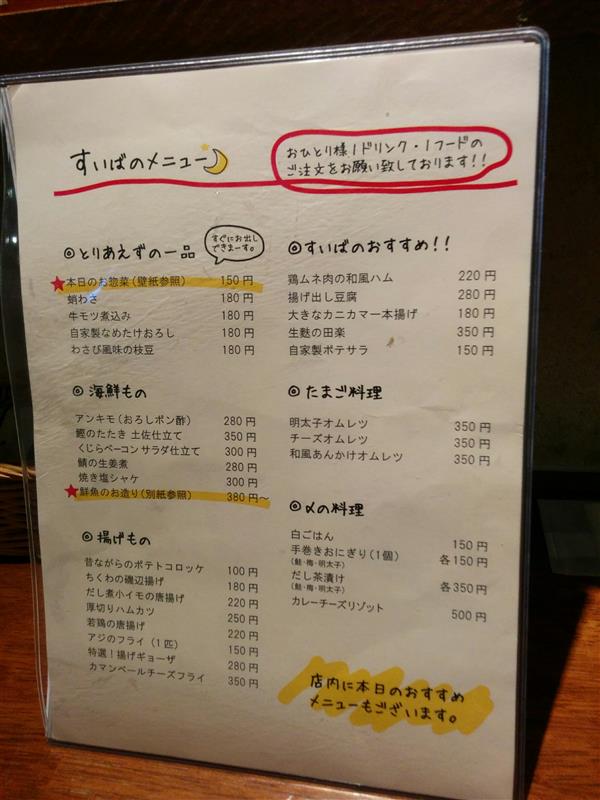 すいばのメニュー
おひとり様1ドリンク・1フードの
ご注文をお願い致しております!!
◎とりあえずの一品
すぐにお出し
できまーす。
★本日のお惣菜(壁紙参照) 150円
蛸わさ 180円
牛モツ煮込み 180円
自家製なめたけおろし 180円
わさび風味の枝豆 180円
◎海鮮もの
アンキモ(おろしポン酢) 280円
鰹のたたき 土佐仕立て 350円
くじらベーコン サラダ仕立て 300円
鯖の生姜煮 280円
焼き塩シャケ 300円
★鮮魚のお造り(別紙参照) 380円~
◎揚げもの
昔ながらのポテトコロッケ 100円
ちくわの磯辺揚げ 180円
だし煮小イモの唐揚げ 220円
厚切りハムカツ 250円
若鶏の唐揚げ 220円
アジのフライ(1匹) 150円
特選!揚げギョーザ 280円
カマンベールチーズフライ 350円
◎すいばのおすすめ!!
鶏ムネ肉の和風ハム 220円
揚げ出し豆腐 280円
大きなカニカマ一本揚げ 180円
生麩の田楽 350円
自家製ポテサラ 150円
◎たまご料理
明太子オムレツ 350円
チーズオムレツ 350円
和風あんかけオムレツ 350円
◎〆の料理
白ごはん 150円
手巻きおにぎり(1個) 各150円
(鮭・梅・明太子)
だし茶漬け 各350円
(鮭・梅・明太子)
カレーチーズリゾット 500円
店内に本日のおすすめ
メニューもございます。